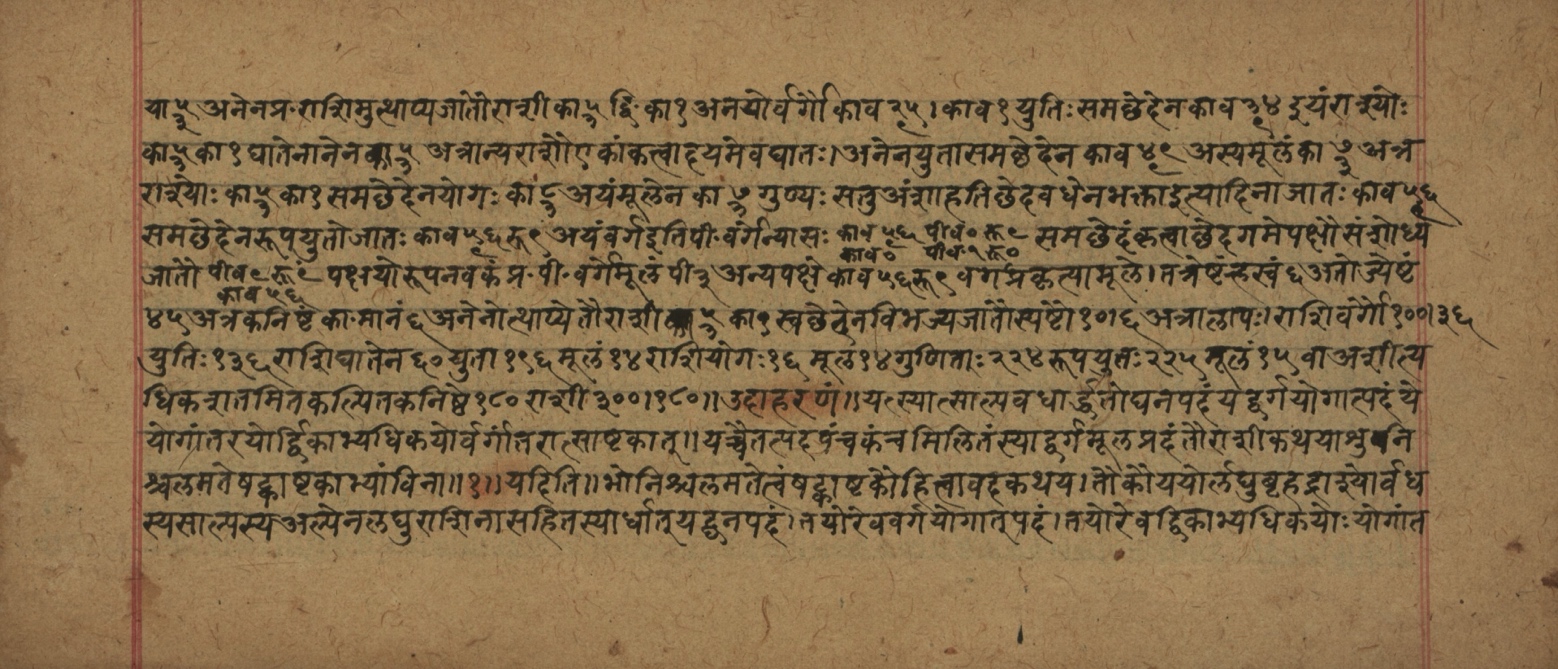 या ५/३ अनेनप्र॰राशिमुत्थाप्यजातोराशी का ५/३ द्वि॰का१ अनयोर्वर्गौ काव २५/९। काव१ युतिः समछेदेन काव ३४/९ इयंराश्योः
का ५/३ का१ घातेनानेन का ५/३ अत्रान्यराशौएकांकत्वादयमेवघातः। अनेनयुतासमछेदेन काव ४९/९ अस्यमूलं का ७/३ अत्र
राश्योः का ५/३ का१ समछेदेनयोगः का ८/३ अयंमूलेन का ७/३ गुण्यः सतुअंशाहतिछेदवधेनभक्ताइत्यादिनाजातः काव ५६/९
समछेदेनरूपयुतोजातः काव ५६ रू९/९ अयंवर्गइतिपी॰वर्गन्यासः काव ५६/९ पीव० रू९ समछेदंकृत्वाछेदगमेपक्षौसंशोध्य
काव० पीव॰१ रू०
जातौ पीव९ रू९ं पक्षयोरूपनवकंप्र॰पी॰वर्गेमूलं पी३ अन्यपक्षे काव ५६रू९ वर्गप्रकृत्यामूले। तत्रेष्टंह्रस्वं६अतोज्येष्टं
काव ५६
४५ अत्रकनिष्टं का॰मानं६ अनेनोत्थाप्येतौराशी ५/३ का१ स्वछेदेनविभज्यजातौस्पष्टौ१०।६ अत्रालापः। राशिवर्गौ१००।३६
युतिः१३६ राशिघातेन६०युता१९६मूलं१४राशियोगः१६मूलं१४गुणिताः२२४रूपयुतः२२५मूलं१५वाअशीत्य
धिकशतमितकल्पितकनिष्ठे१८०राशी३००।१८०॥उदाहरणं॥यत्स्यात्साल्पवधार्द्धतोघनपदंयद्वर्गयोगात्पदंये
योगांतरयोर्द्विकाभ्यधिकयोर्वर्गांतरात्साष्टकात्॥यच्चैतत्पदपंचकंचमिलितंस्याद्वर्गमूलप्रदंतौराशीकथयाश्रुनि
श्चलमतेषट्काष्टकाभ्यांविना॥१॥यदिति॥भोनिश्चलमतेत्वंषट्काष्टकौहित्वावदकथय।तौकौययोर्लघुबृहद्राश्योर्वध
स्यसाल्पस्यअल्पेनलघुराशिनासहितस्यार्धात्यद्घनपदं।तयोरेववर्गयोगात्पदं।तयोरेवद्विकाभ्यधिकयोःयोगांत